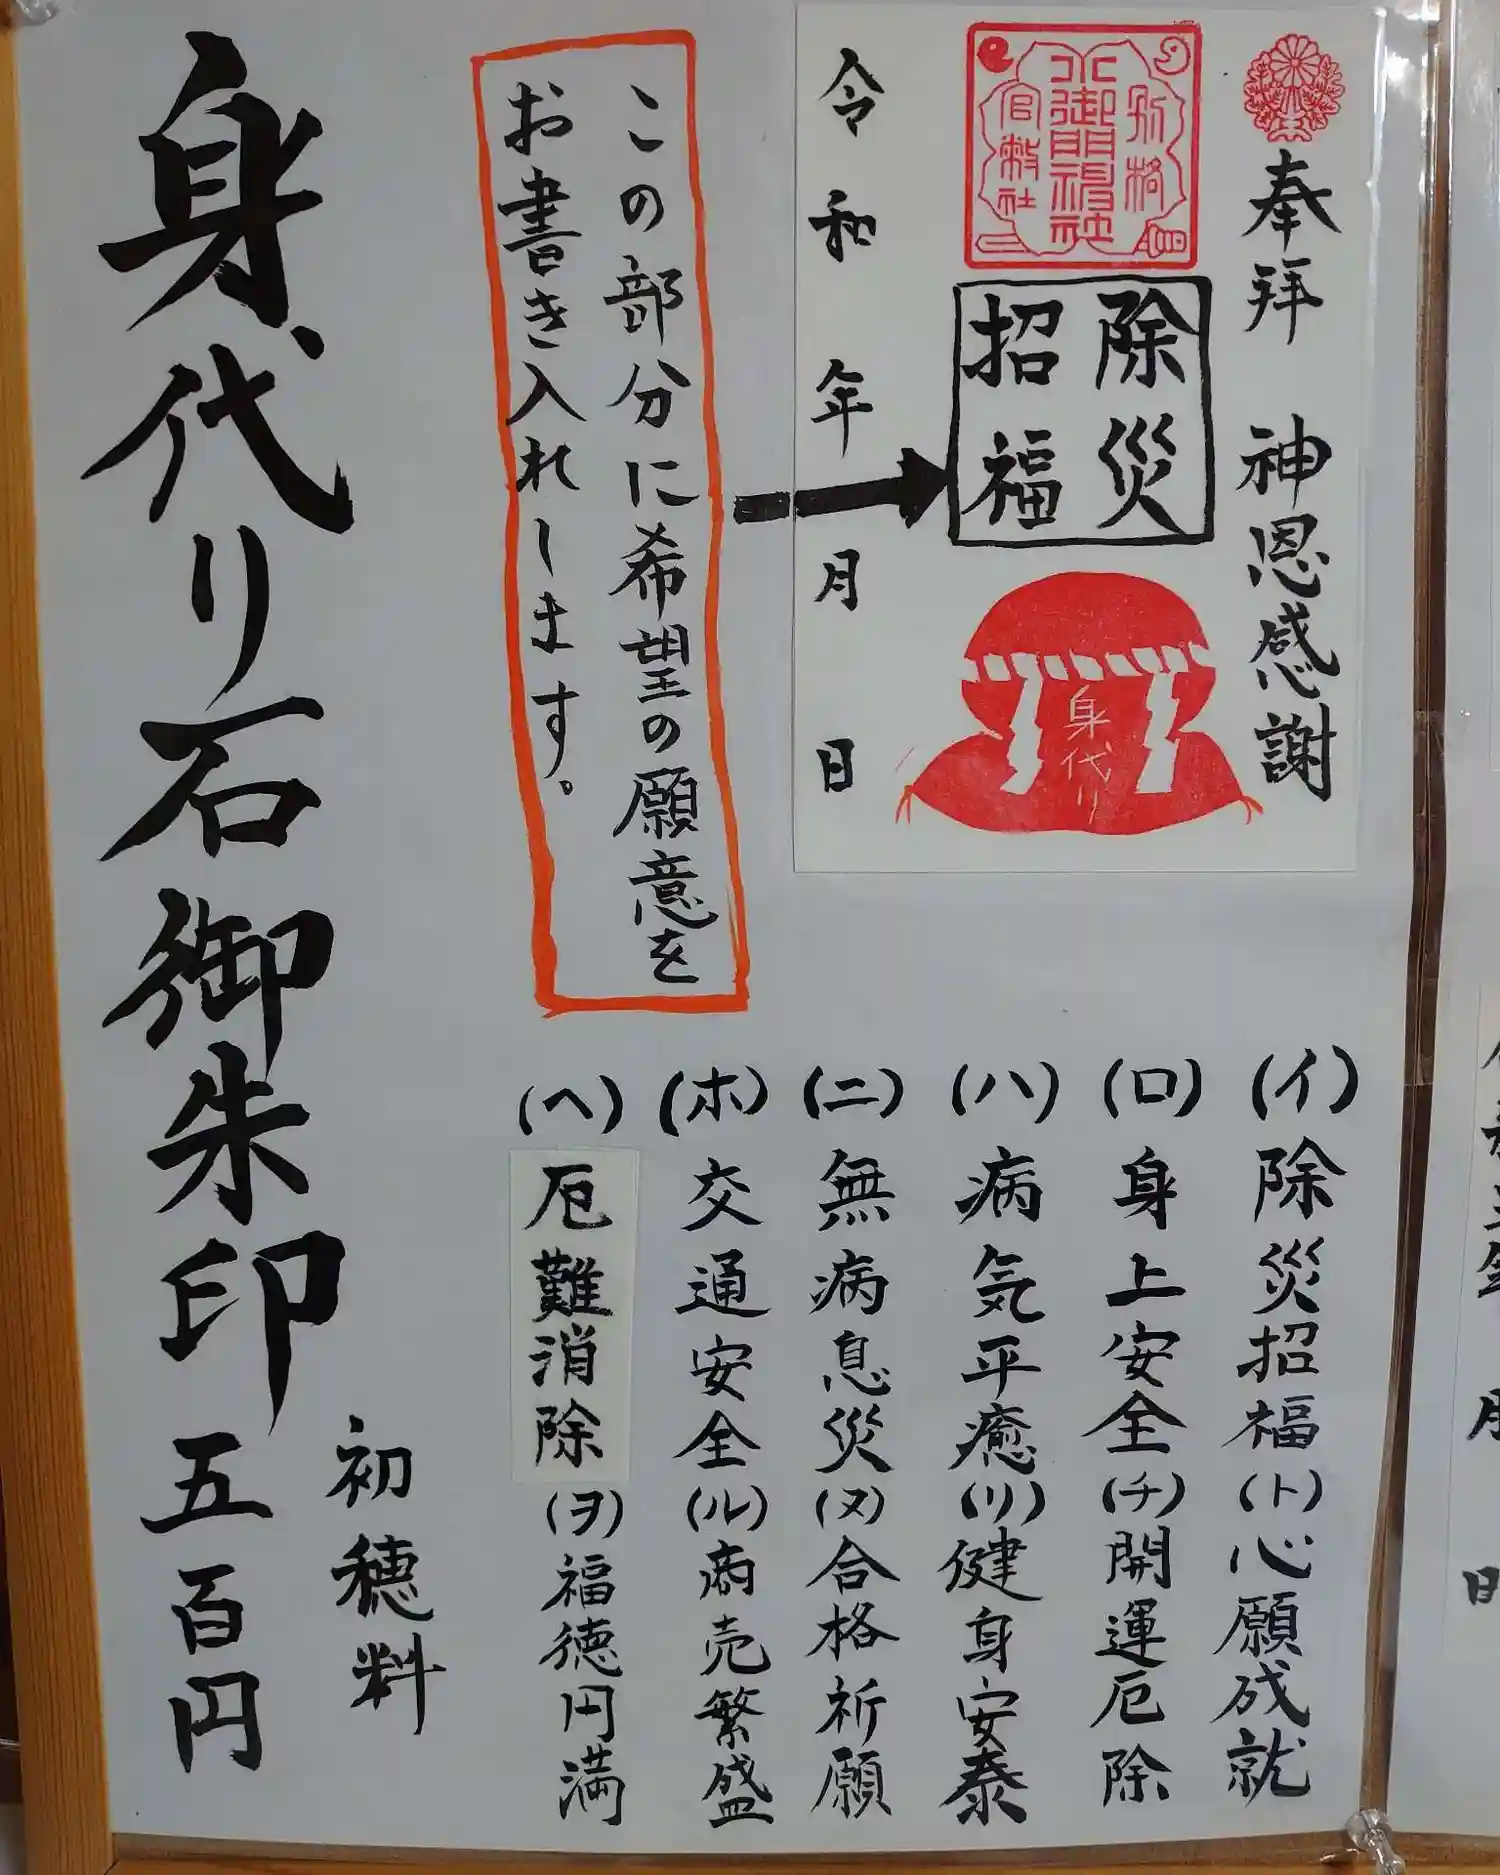 奉拝 神恩感謝
別格
小御門神社
官幣社
除災
招福
身代り
令和 年 月 日
この部分に希望の願意を
お書き入れします。
(イ)除災招福
(ロ)身上安全
(ハ)病気平癒
(ニ)無病息災
(ホ)交通安全
(ヘ)厄難消除
(ト)心願成就
(チ)開運厄除
(リ)健身安泰
(ヌ)合格祈願
(ル)商売繁盛
(ヲ)福徳円満
身代り石御朱印
初穂料
五百円